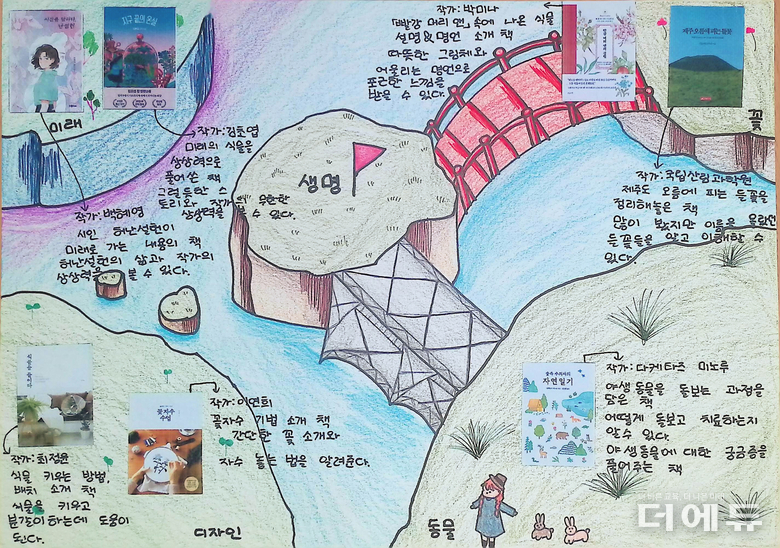 지구 끝의 온실
미래
작가:김초엽
미래의 식물을
상상력으로
풀어쓴 책
그럴듯한 스
토리와 작가의 무한한
상상력을 볼 수 있다.
작가:백혜영
시인 허난설헌이
미래로 가는 내용의 책
허난설헌의 삶과 작가의
상상력을 볼 수 있다.
작가:박미나
「빨강 머리 앤」속에 나온 식물
설명&명언 소개 책
따뜻한 그림체와
어울리는 명언으로
포근한 느낌을
받을 수 있다.
제주오름에 피는 들꽃
꽃
작가:국립산림과학원
제주도 오름에 피는 들꽃을
정리해놓은 책
많이 봤지만 이름은 몰랐던
들꽃들을 알고 이해할 수
있다.
생명
작가:최정윤
식물 키우는 방법,
배치 소개 책
식물을 키우고
분갈이하는데 도움이
된다.
꽃자수 수업
작가:이연희
꽃자수 기법 소개 책
간단한 꽃 소개와
자수 놓는 법을 알려준다.
디자인
숲속 수의사의
자연일기
작가:다케타즈 미노루
야생 동물을 돌보는 과정을
담은 책
어떻게 돌보고 치료하는지
알 수 있다.
야생 동물에 대한 궁금증을
풀어주는 책
동물
더에듀